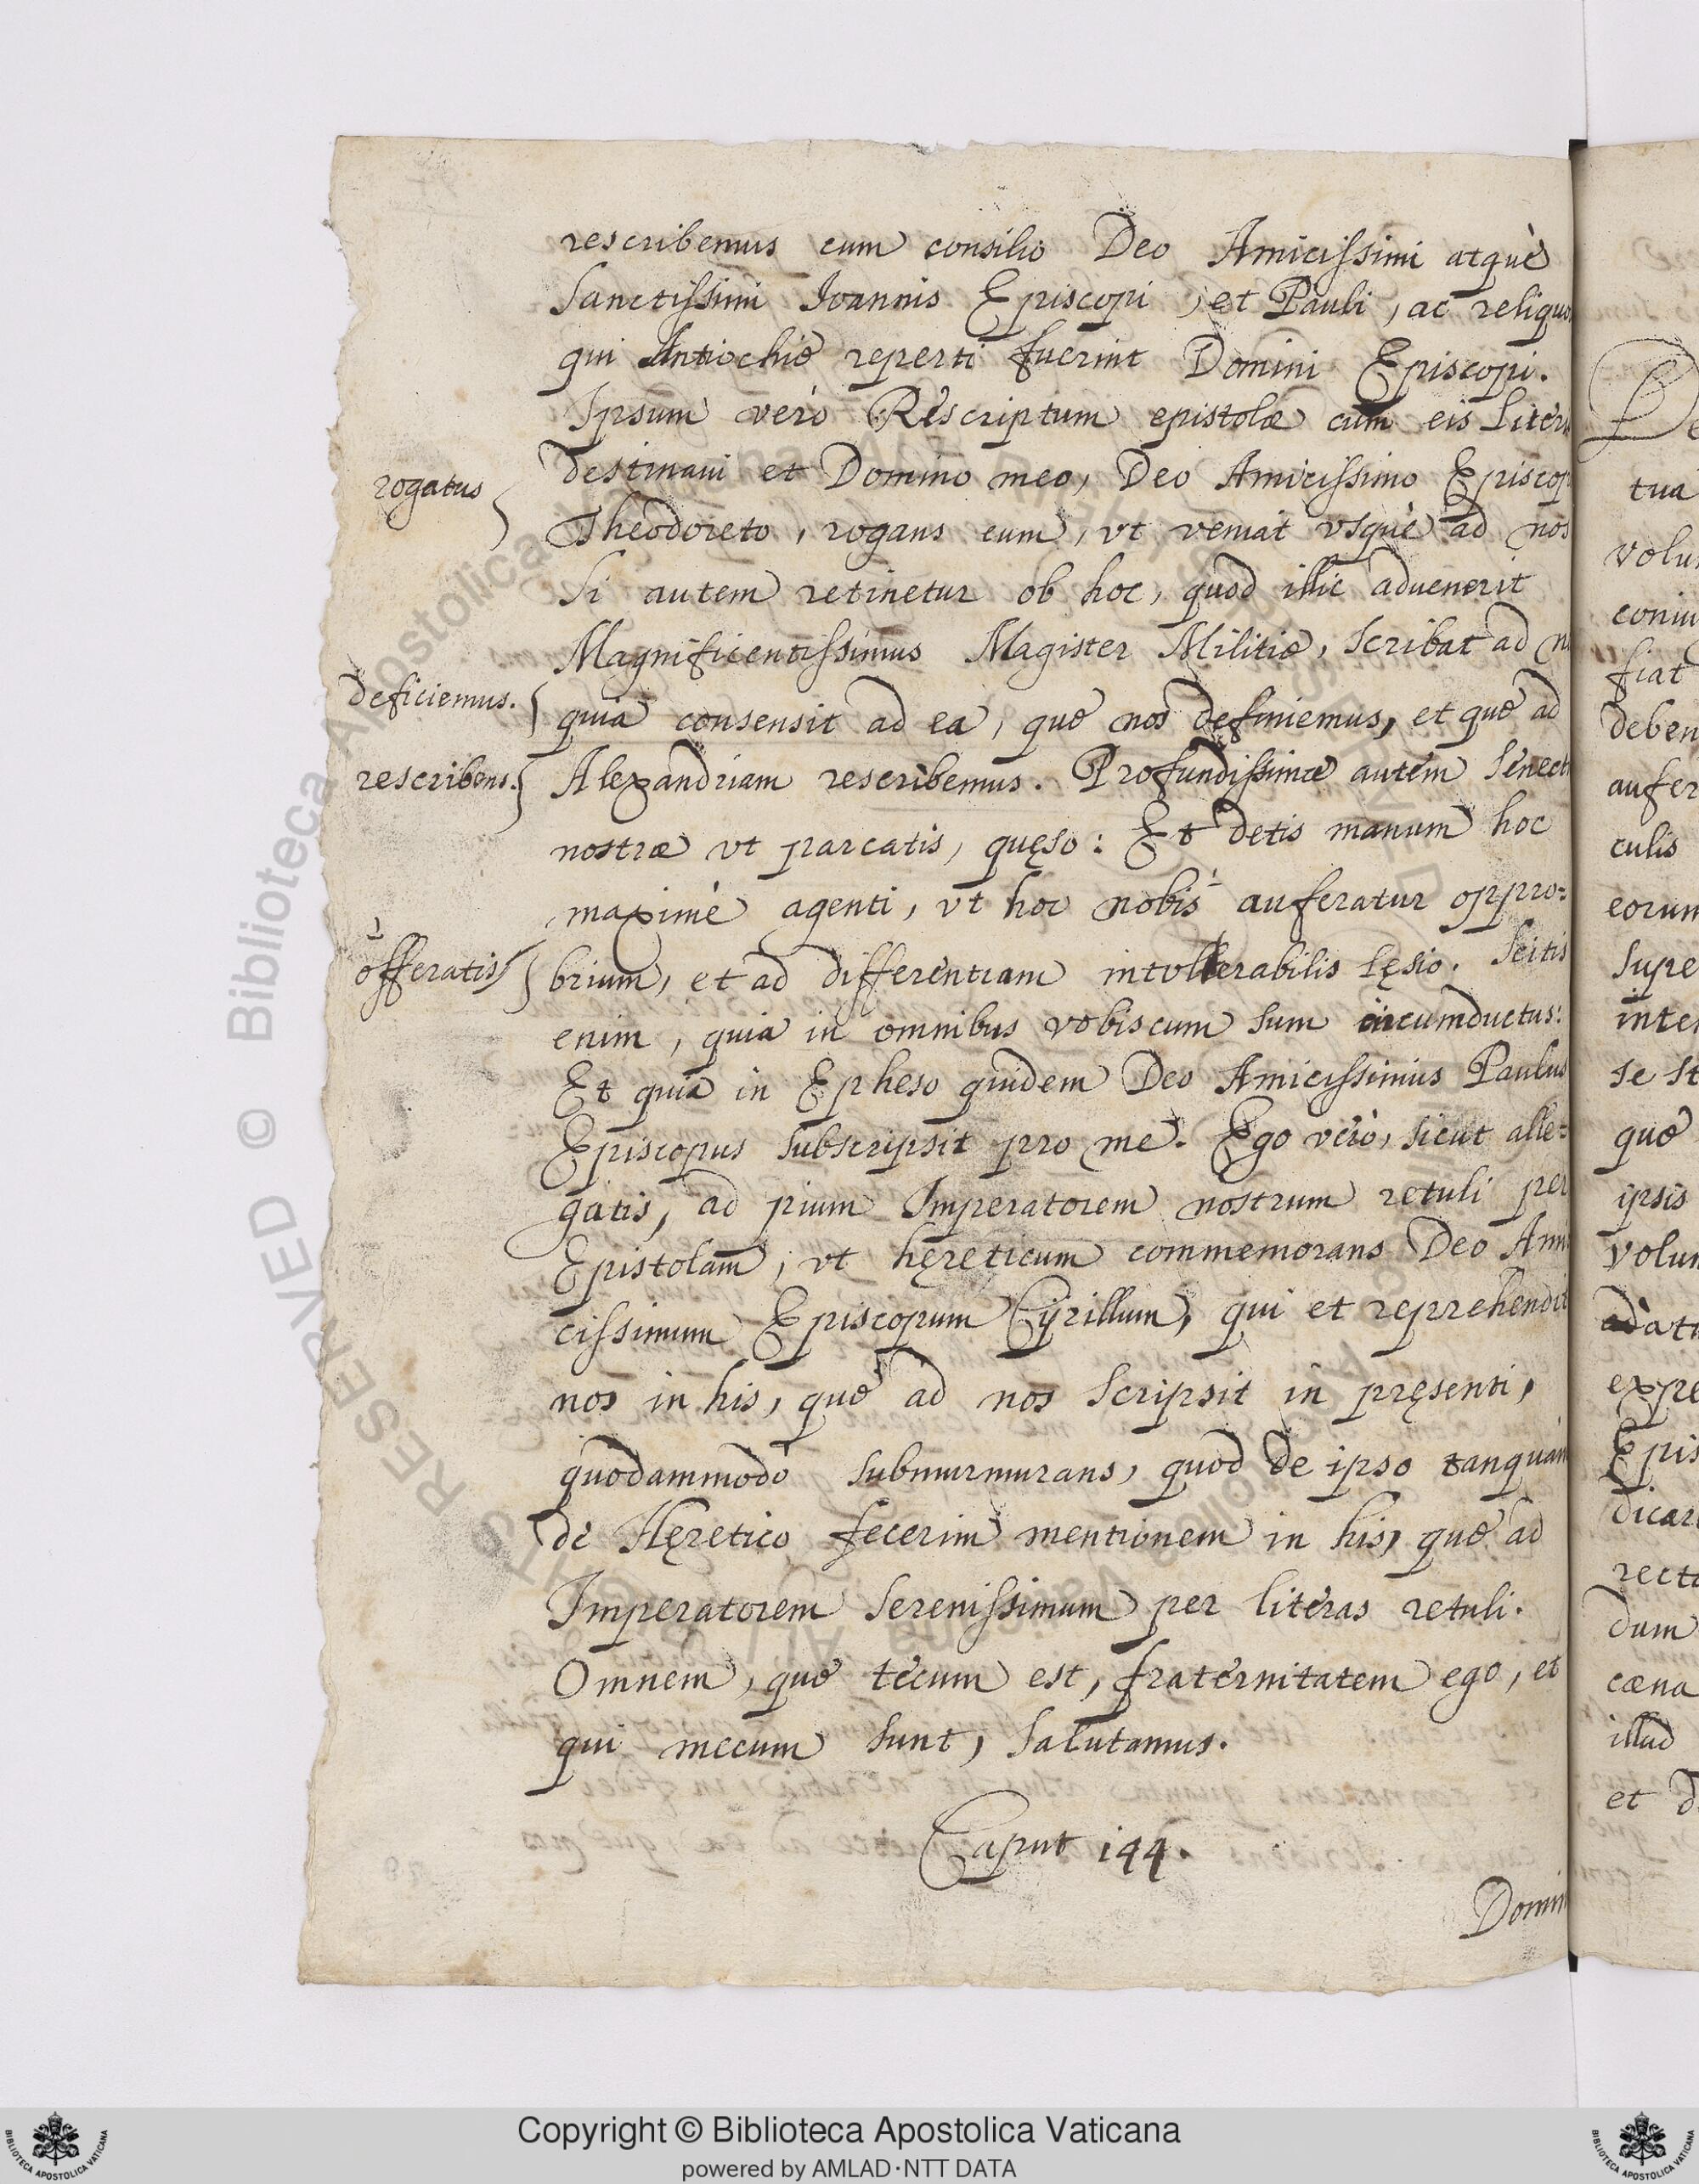 rescribemus cum consilio Deo Amicissimi atquè
Sanctissimi Ioannis Episcopi, et Pauli, ac reliquo
qui Antiochiẹ reperti fuerint Domini Episcopi.
Ipsum verò Rescriptum epistolæ cum eis Liter
rogatus
destinaui et Domino meo, Deo Amicissimo Episcop
Theodoreto, rogans eum, vt veniat vsquè ad nos
Si autem retinetur ob hoc, quod illic aduenerit
Magnificentissimus Magister Militiẹ, scribat ad n
deficiemus.
quia consensit ad ea, quẹ nos definiemus, et quẹ ad
rescribens.
Alexandriam rescribemus. Profundissimæ autem senect
nostræ vt parcatis, quęso: Et detis manum hoc
maximè agenti, vt hoc nobis auferatur oppro:
offeratis
brium, et ad differentiam intollerabilis lęsio. Scitis
enim, quia in omnibus vobiscum sum circumductus:
Et quia in Epheso quidem Deo Amicissimus Paulus
Episcopus subscripsit pro me. Ego verò, sicut alle:
gatis, ad pium Imperatorem nostrum retuli per
Epistolam, vt hęreticum commemorans Deo Ami
cissimum Episcopum Cyrillum, qui et reprehendit
nos in his, quẹ ad nos scripsit in pręsenti,
quodammodò submurmurans, quod de ipso tanquam
de Hęretico fecerim mentionem in his, quẹ ad
Imperatorem Serenissimum per literas retuli.
Omnem, quẹ tecum est, fraternitatem ego, et
qui mecum sunt, salutamus.
Caput 144.
Domin
tua
volu
coniu
fiat
deben
aufer
culis
eorum
supe
inte
se st
quẹ
ipsis
volun
expre
Epis
dicar
recta
dum
cæna
illud
et d
© Biblioteca Apostolica Vaticana
RESERVED
Copyright © Biblioteca Apostolica Vaticana
powered by AMLAD·NTT DATA
BIBLIOTECA APOSTOLICA VATICANA
BIBLIOTECA APOSTOLICA VATICANA